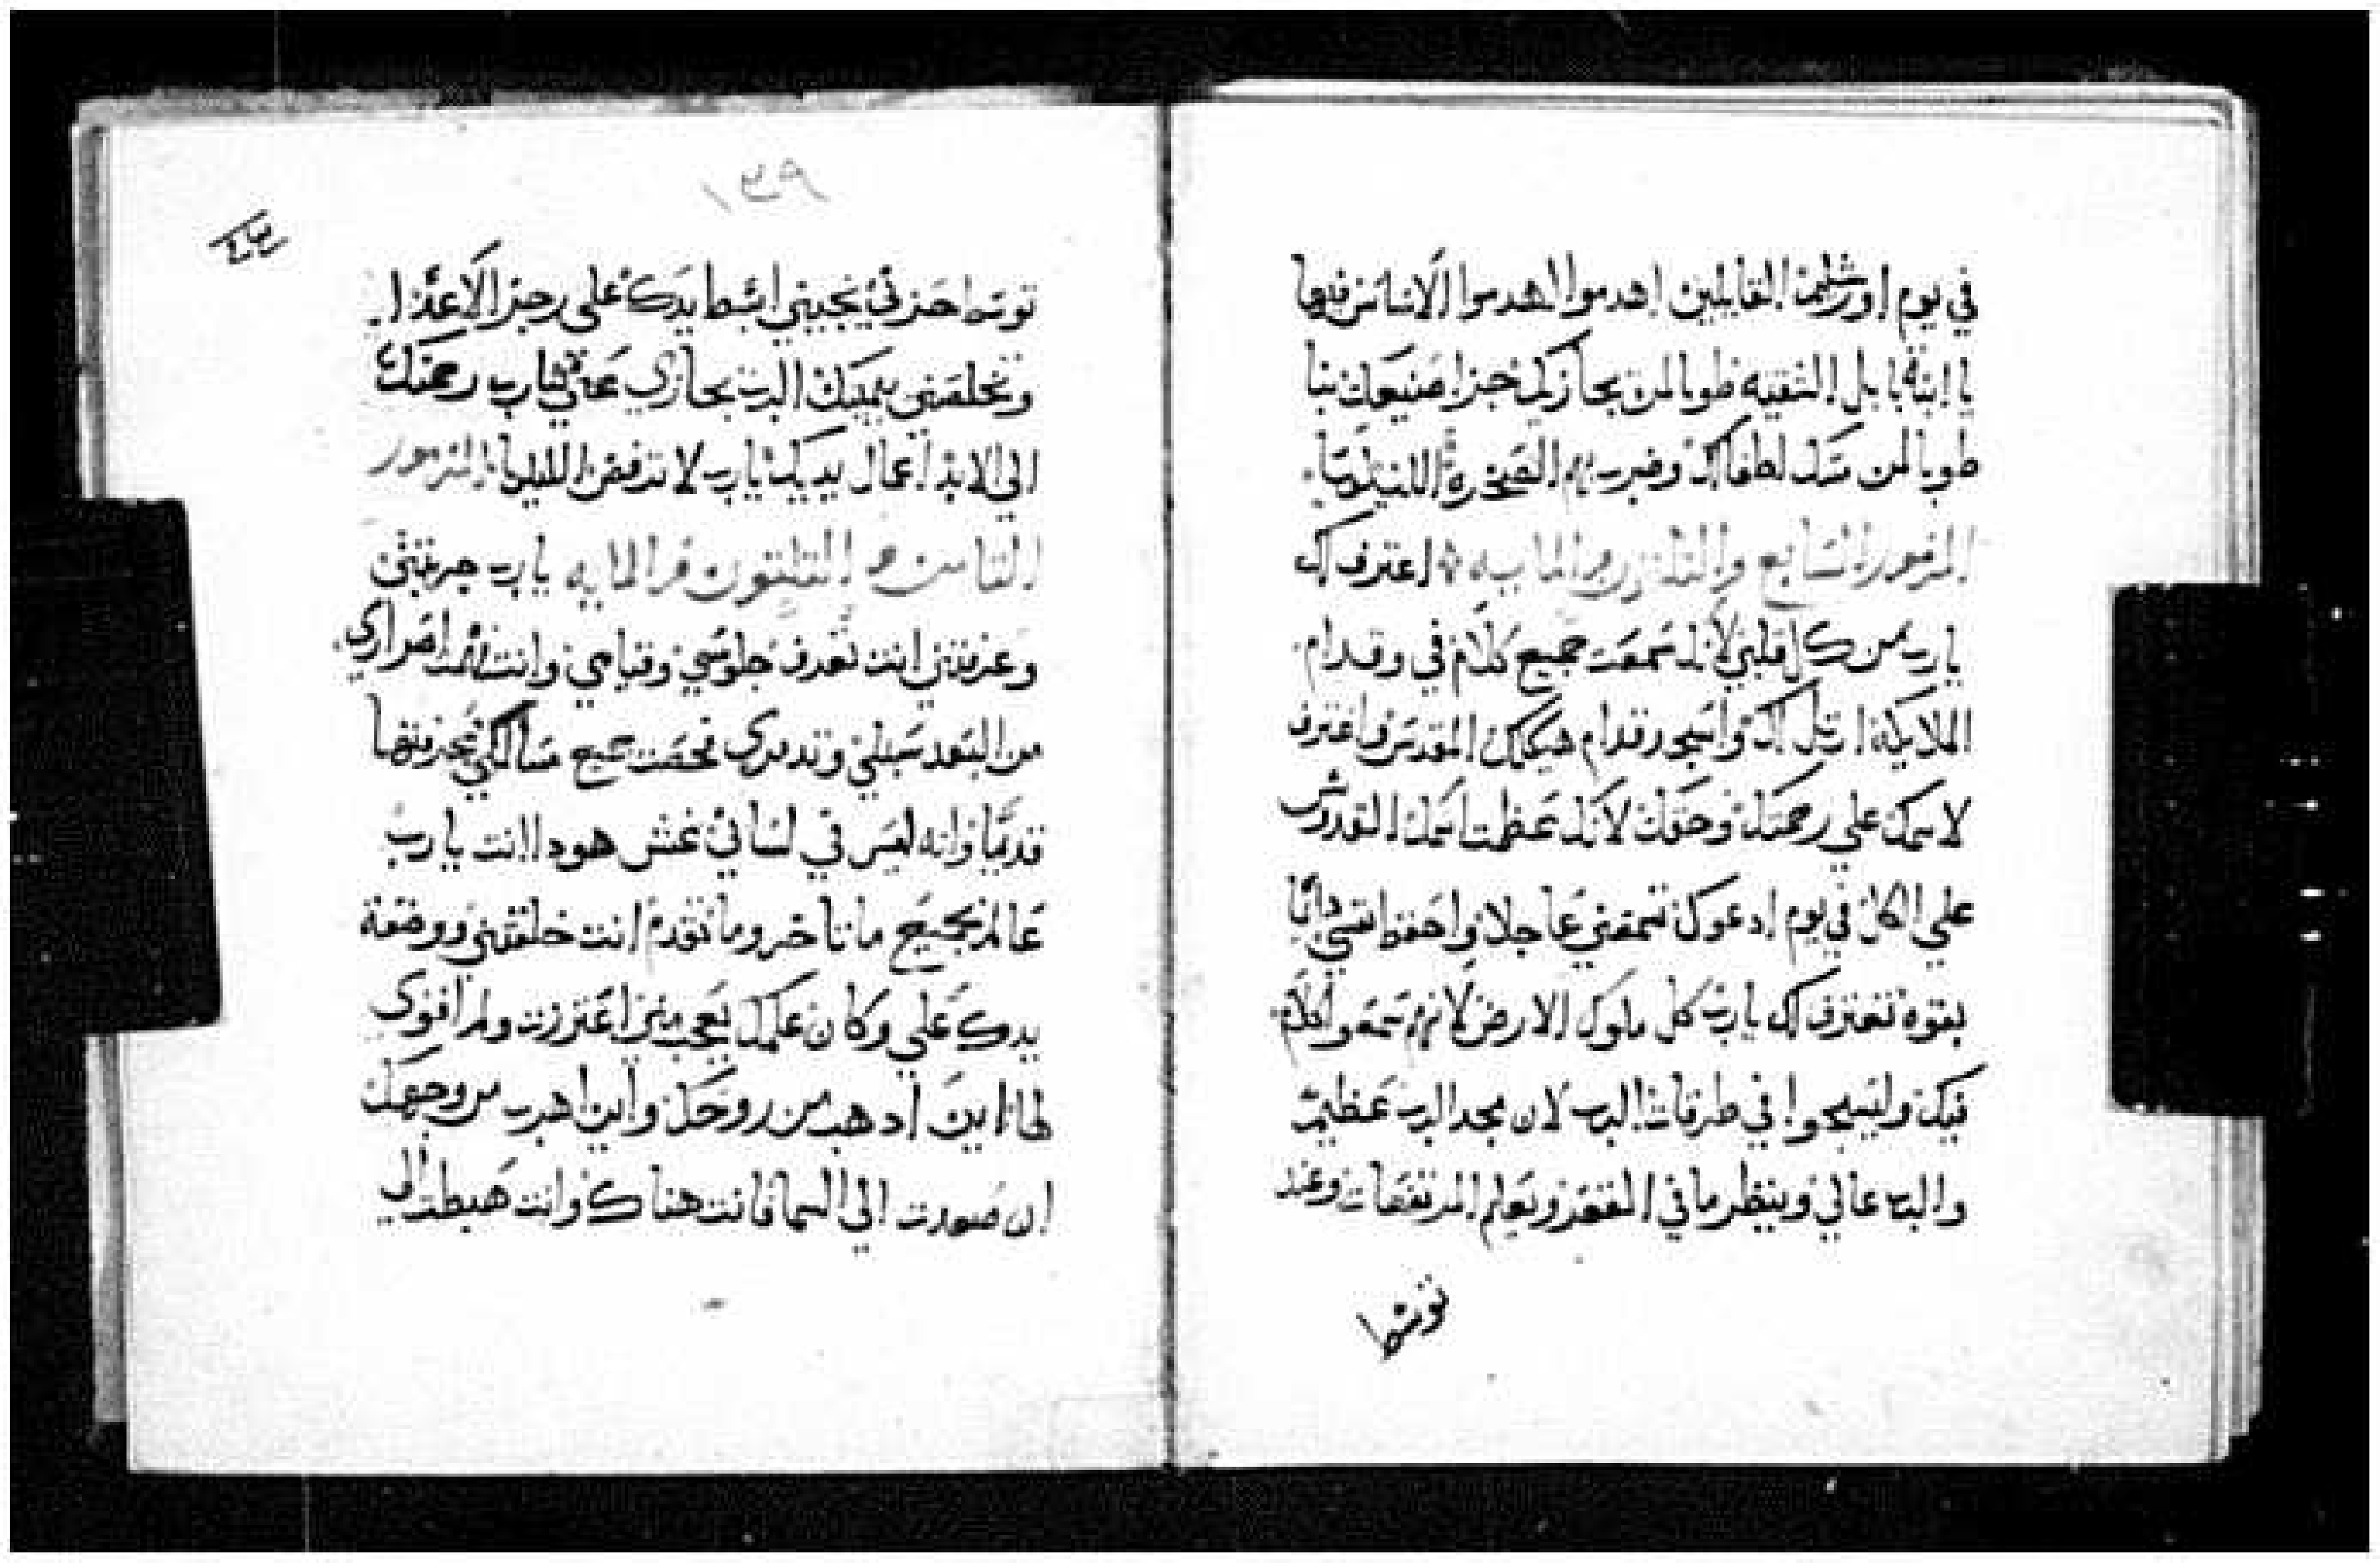 في يوم اورشليم القايلين اهدموا اهدموا الاساس فيها
يا ابنة بابل الشقيه طوبا لمن يجازيك جزا صنيعك بنا
طوبا لمن مسك اطفالك وضرب بهم الصخرة الليلويا
المزمور السابع والثلثون والمايه اعترف لك
يارب من كل قلبي لانك سمعت جميع كلام في وقدام
الملايكة ارتل لك واسجد قدام هيكلك المقدس واعترف
لاسمك علي رحمتك وحقك لانك عظمت اسمك القدوس
علي الكل في يوم ادعوك تسمعني عاجلا واحفظ نفسي دايما
بقوة تعترف لك يارب كل ملوك الارض لانهم سمعوا كلام
فيك وليسبحوا في طرقات الرب لان مجد الرب عظيم
والرب عالي وينظر ما في القعر ويعلم المرتفعات وعند
توسط
١٣٩
توسط احزني تحييني ابسط يدك علي رجز الاعدا
وتخلصني يمينك الرب يجازي عني يارب رحمتك
الي الابد اعمال يديك يارب لا ترفض الليلويا المزمور
الثامن و الثلثون والمايه يارب جربتني
وعرفتني انت تعرف جلوسي وقيامي وانت اضراري
من البعد سبلي وتدبري فحصت جميع مسالكي عرفتها
قديما وانه ليس في لساني غش هودا انت يارب
عالم بجميع ما تاخر وما تقدم انت خلقتني ووضعة
يدك علي وكان علمك بعجب مني اعتززت ولم اقوي
لها اين ادهب من روحك واين اهرب من وجهك
ان صعدت الي السما فانت هناك وانت هبطت الي